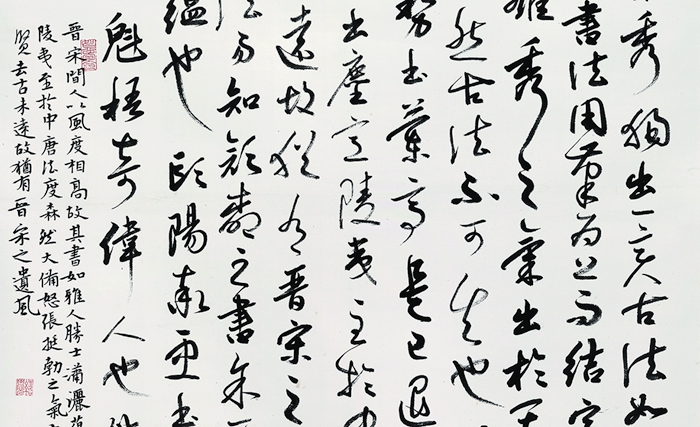 秀獨出一變古法如
書法用筆為上而結字
雄秀之氣出於天
然古法不可失也
書蘭亭是已退
出塵意陵夷至於中
遠故猶有晉宋之
知之書余
縕也歐陽率更書
魁梧奇偉人也
晉宋間人以風度相高故其書如雅人勝士瀟灑
陵夷至於中唐法度森然大備怒張挺勃之氣
賢去古未遠故猶有晉宋之遺風